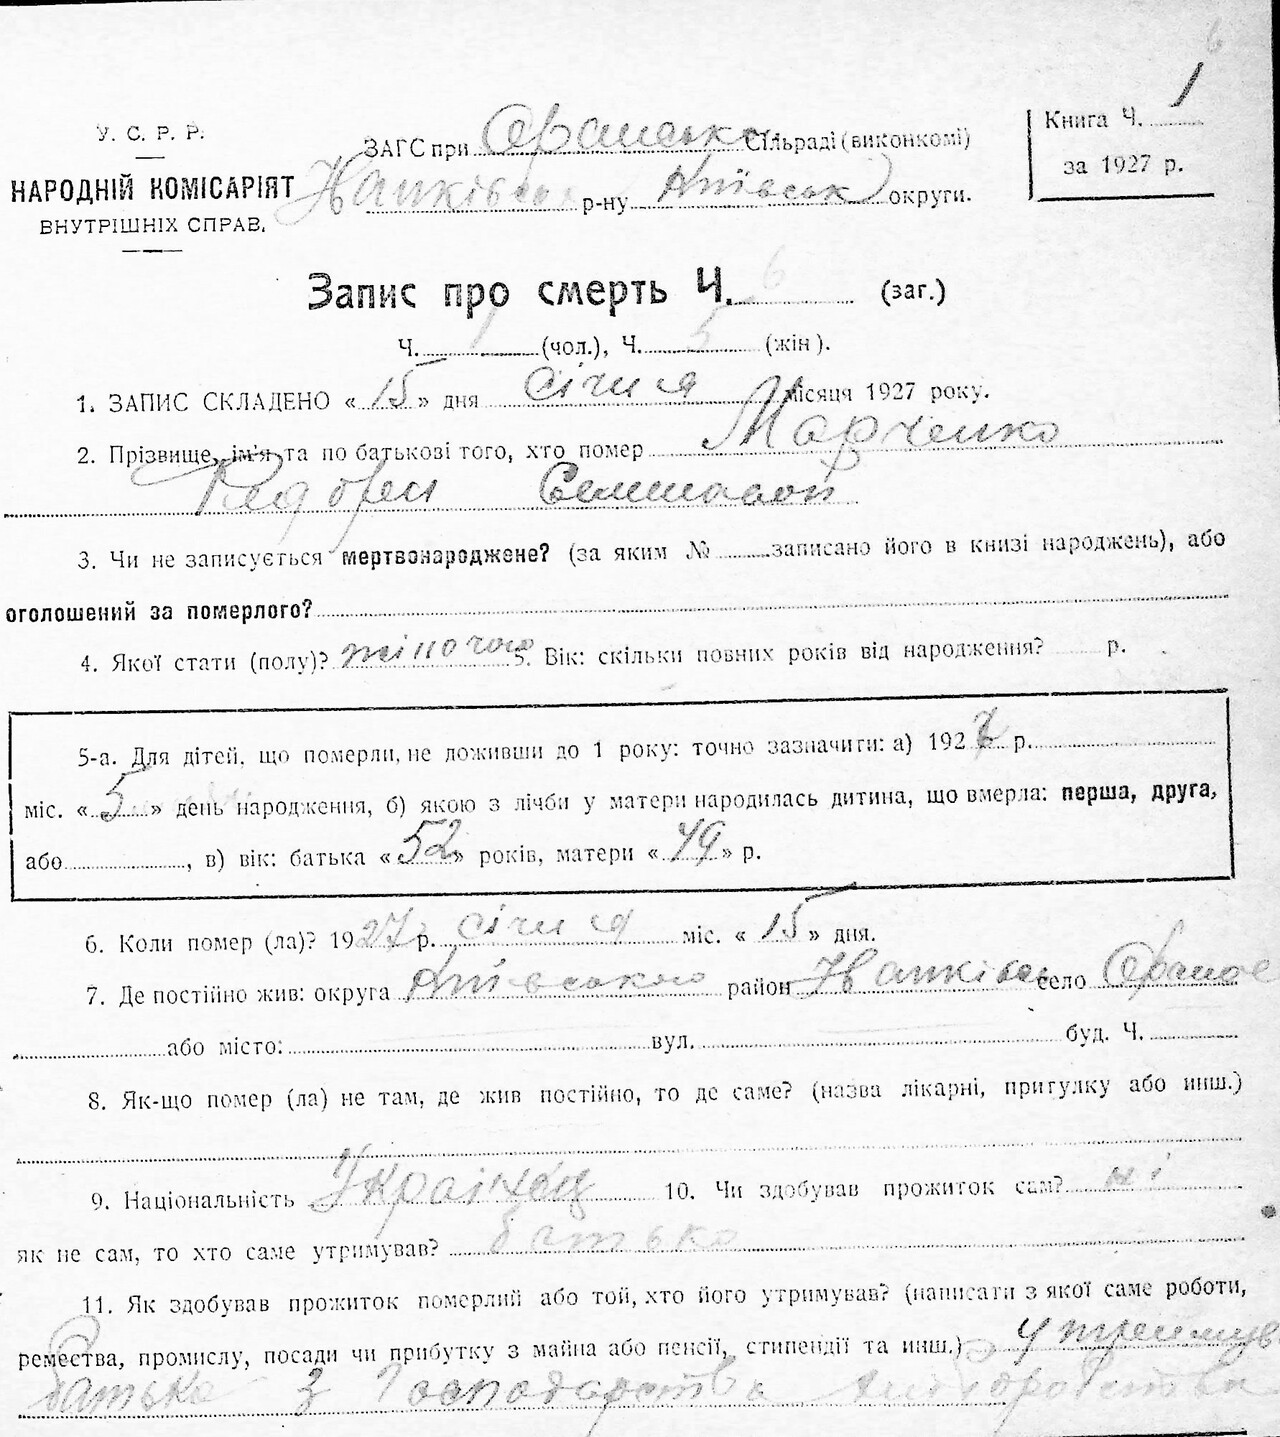 6
У. С. Р. Р.
НАРОДНІЙ КОМІСАРІЯТ
ВНУТРІШНІХ СПРАВ.
ЗАГС при Орансько Сільраді (виконкомі)
р-ну Київськ округи.
Книга Ч. 1
за 1927 р.
Запис про смерть Ч. 6 (заг.)
Ч. 1 (чол.), Ч. 5 (жін).
1. ЗАПИС СКЛАДЕНО « 15 » дня Січня місяця 1927 року.
2. Прізвище, ім'я та по батькові того, хто помер Марченко
3. Чи не записується мертвонароджене? (за яким № записано його в книзі народжень), або
оголошений за померлого?
4. Якої стати (полу)? жіночою 5. Вік: скільки повних років від народження? р.
5-а. Для дітей, що померли, не доживши до 1 року: точно зазначити: а) 1927 р.
міс. « 5 » день народження, б) якою з лічби у матери народилась дитина, що вмерла: перша, друга,
або , в) вік: батька « 52 » років, матери « 49 » р.
6. Коли помер (ла)? 1927 р. січня міс. « 15 » дня.
7. Де постійно жив: округа Київською район село Оране
або місто: вул. буд. Ч.
8. Як-що помер (ла) не там, де жив постійно, то де саме? (назва лікарні, притулку або инш.)
9. Національність 10. Чи здобував прожиток сам? ні
як не сам, то хто саме утримував? батько
11. Як здобував прожиток померлий або той, хто його утримував? (написати з якої саме роботи,
ремества, промислу, посади чи прибутку з майна або пенсії, стипендії та инш.)
батько з Господарства